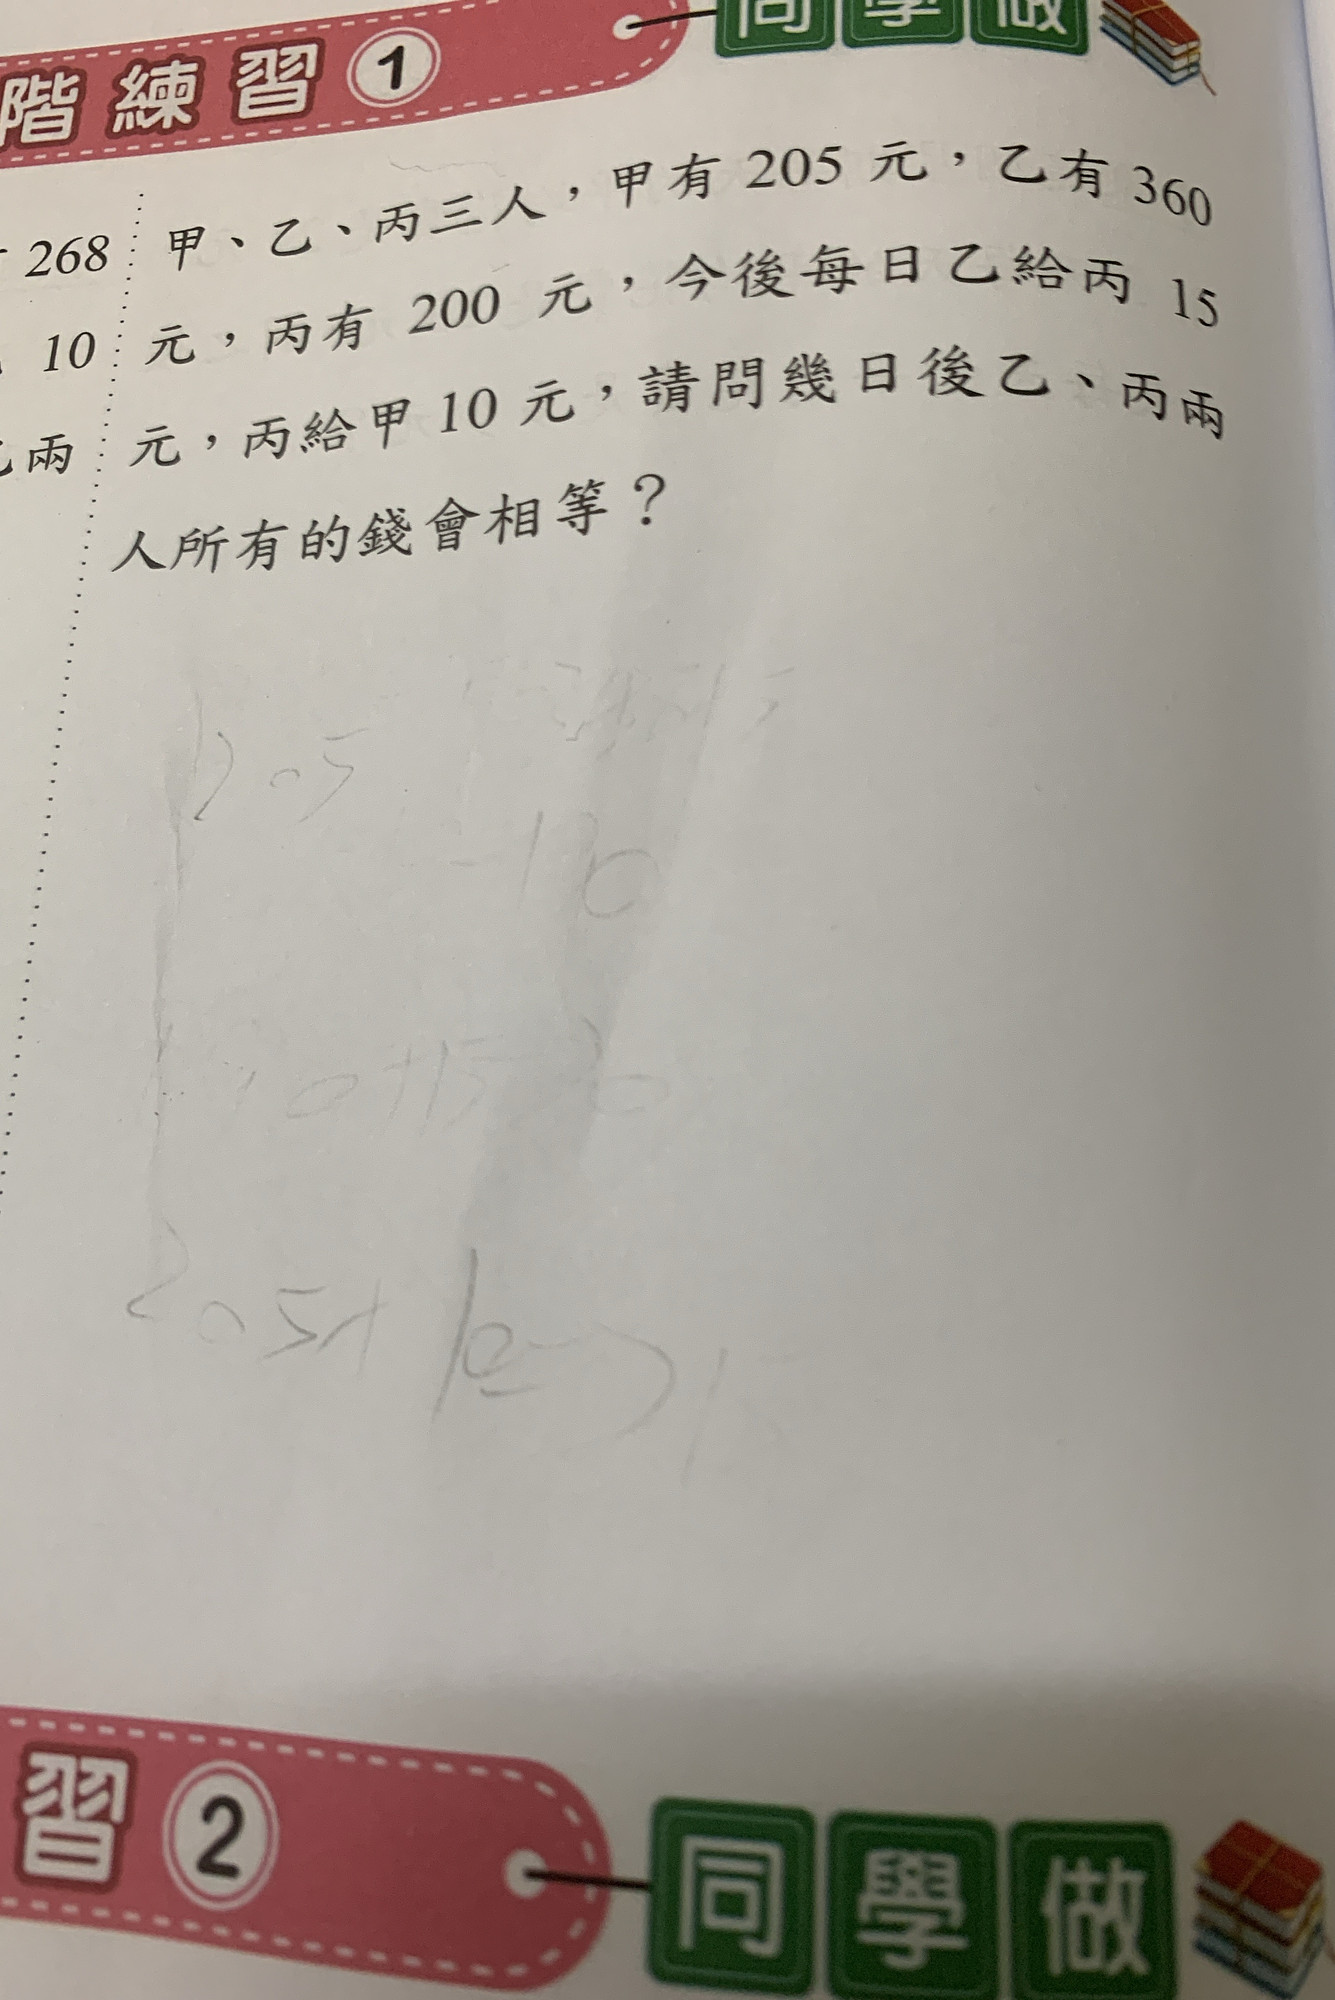 同學做
階練習1
268
10
兩
甲、乙、丙三人，甲有 205 元，乙有 360
元，丙有 200 元，今後每日乙給丙 15
元，丙給甲 10 元，請問幾日後乙、丙兩
人所有的錢會相等？
205
10+15
205+10
習2
同學做